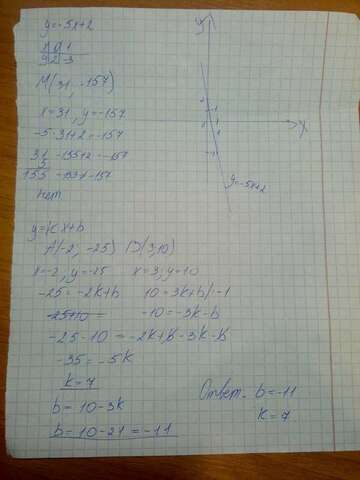 y=-5x+2
x 0 1
y 2 -3
M(31, -157)
x=31, y=-157
-5·31+2=-157
31 -155+2=-157
5
155 -153≠-157
нет
y
x
y=-5x+2
y=kx+b
A(-2; -25) D(3,10)
x=-2, y=-25 x=3; y=10
-25=-2k+b 10=3k+b/·-1
-25+10= -10=-3k-b
-25-10=-2k+b-3k-b
-35=-5k
k=7
b=10-3k
b=10-21=-11
Ответ. b=-11
k=7